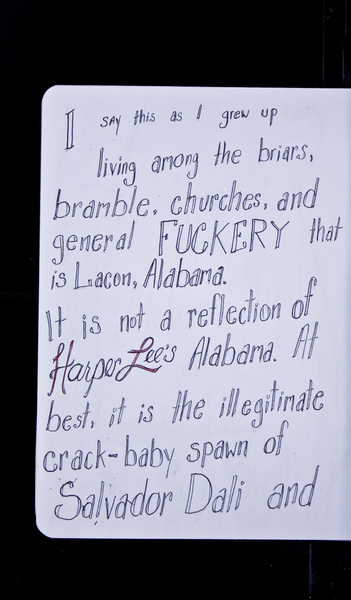 I say this as I grew up
living among the briars,
bramble, churches, and
general FUCKERY that
is Lacon, Alabama.
It is not a reflection of
Harper Lee's Alabama. At
best, it is the illegitimate
crack-baby spawn of
Salvador Dali and